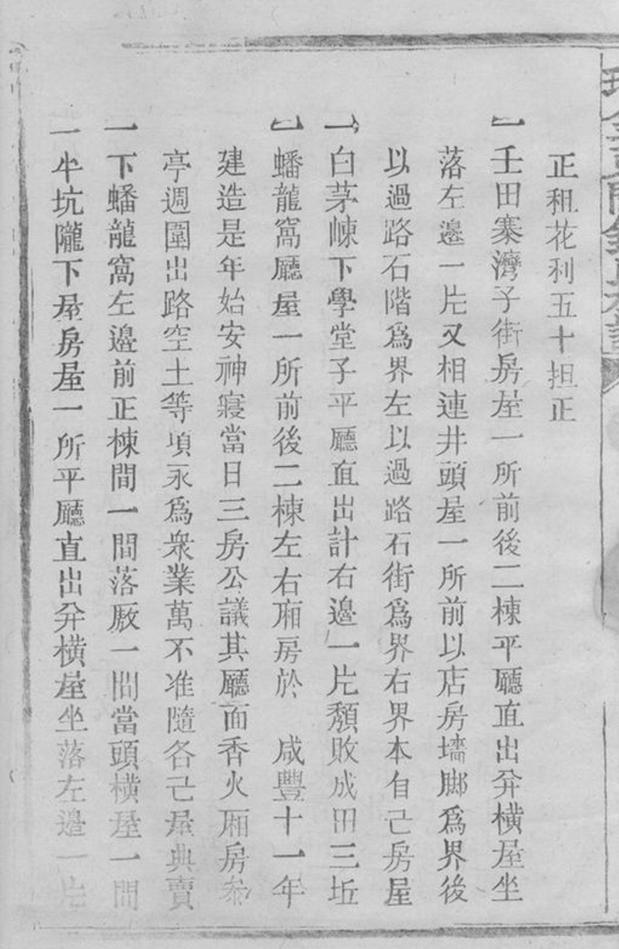 正租花利五十担正
一壬田寨灣子街房屋一所前後二棟平廳直出分橫屋坐
落左邊一片又相連井頭屋一所前以店房墻脚爲界後
以過路石階爲界左以過路石街爲界右界本自己房屋
一白茅崠下學堂子平廳直出計右邊一片頽敗成田三坵
一蟠龍窩廳屋一所前後二棟左右厢房於　咸豐十一年
建造是年始安神寢當日三房公議其廳面香火厢房叅
亭週圍出路空土等項永爲衆業萬不准隨各己屋典賣
一下蟠龍窩左邊前正棟間一間落厫一間當頭橫屋一間
一牛坑隴下屋房屋一所平廳直出分橫屋坐落左邊一片